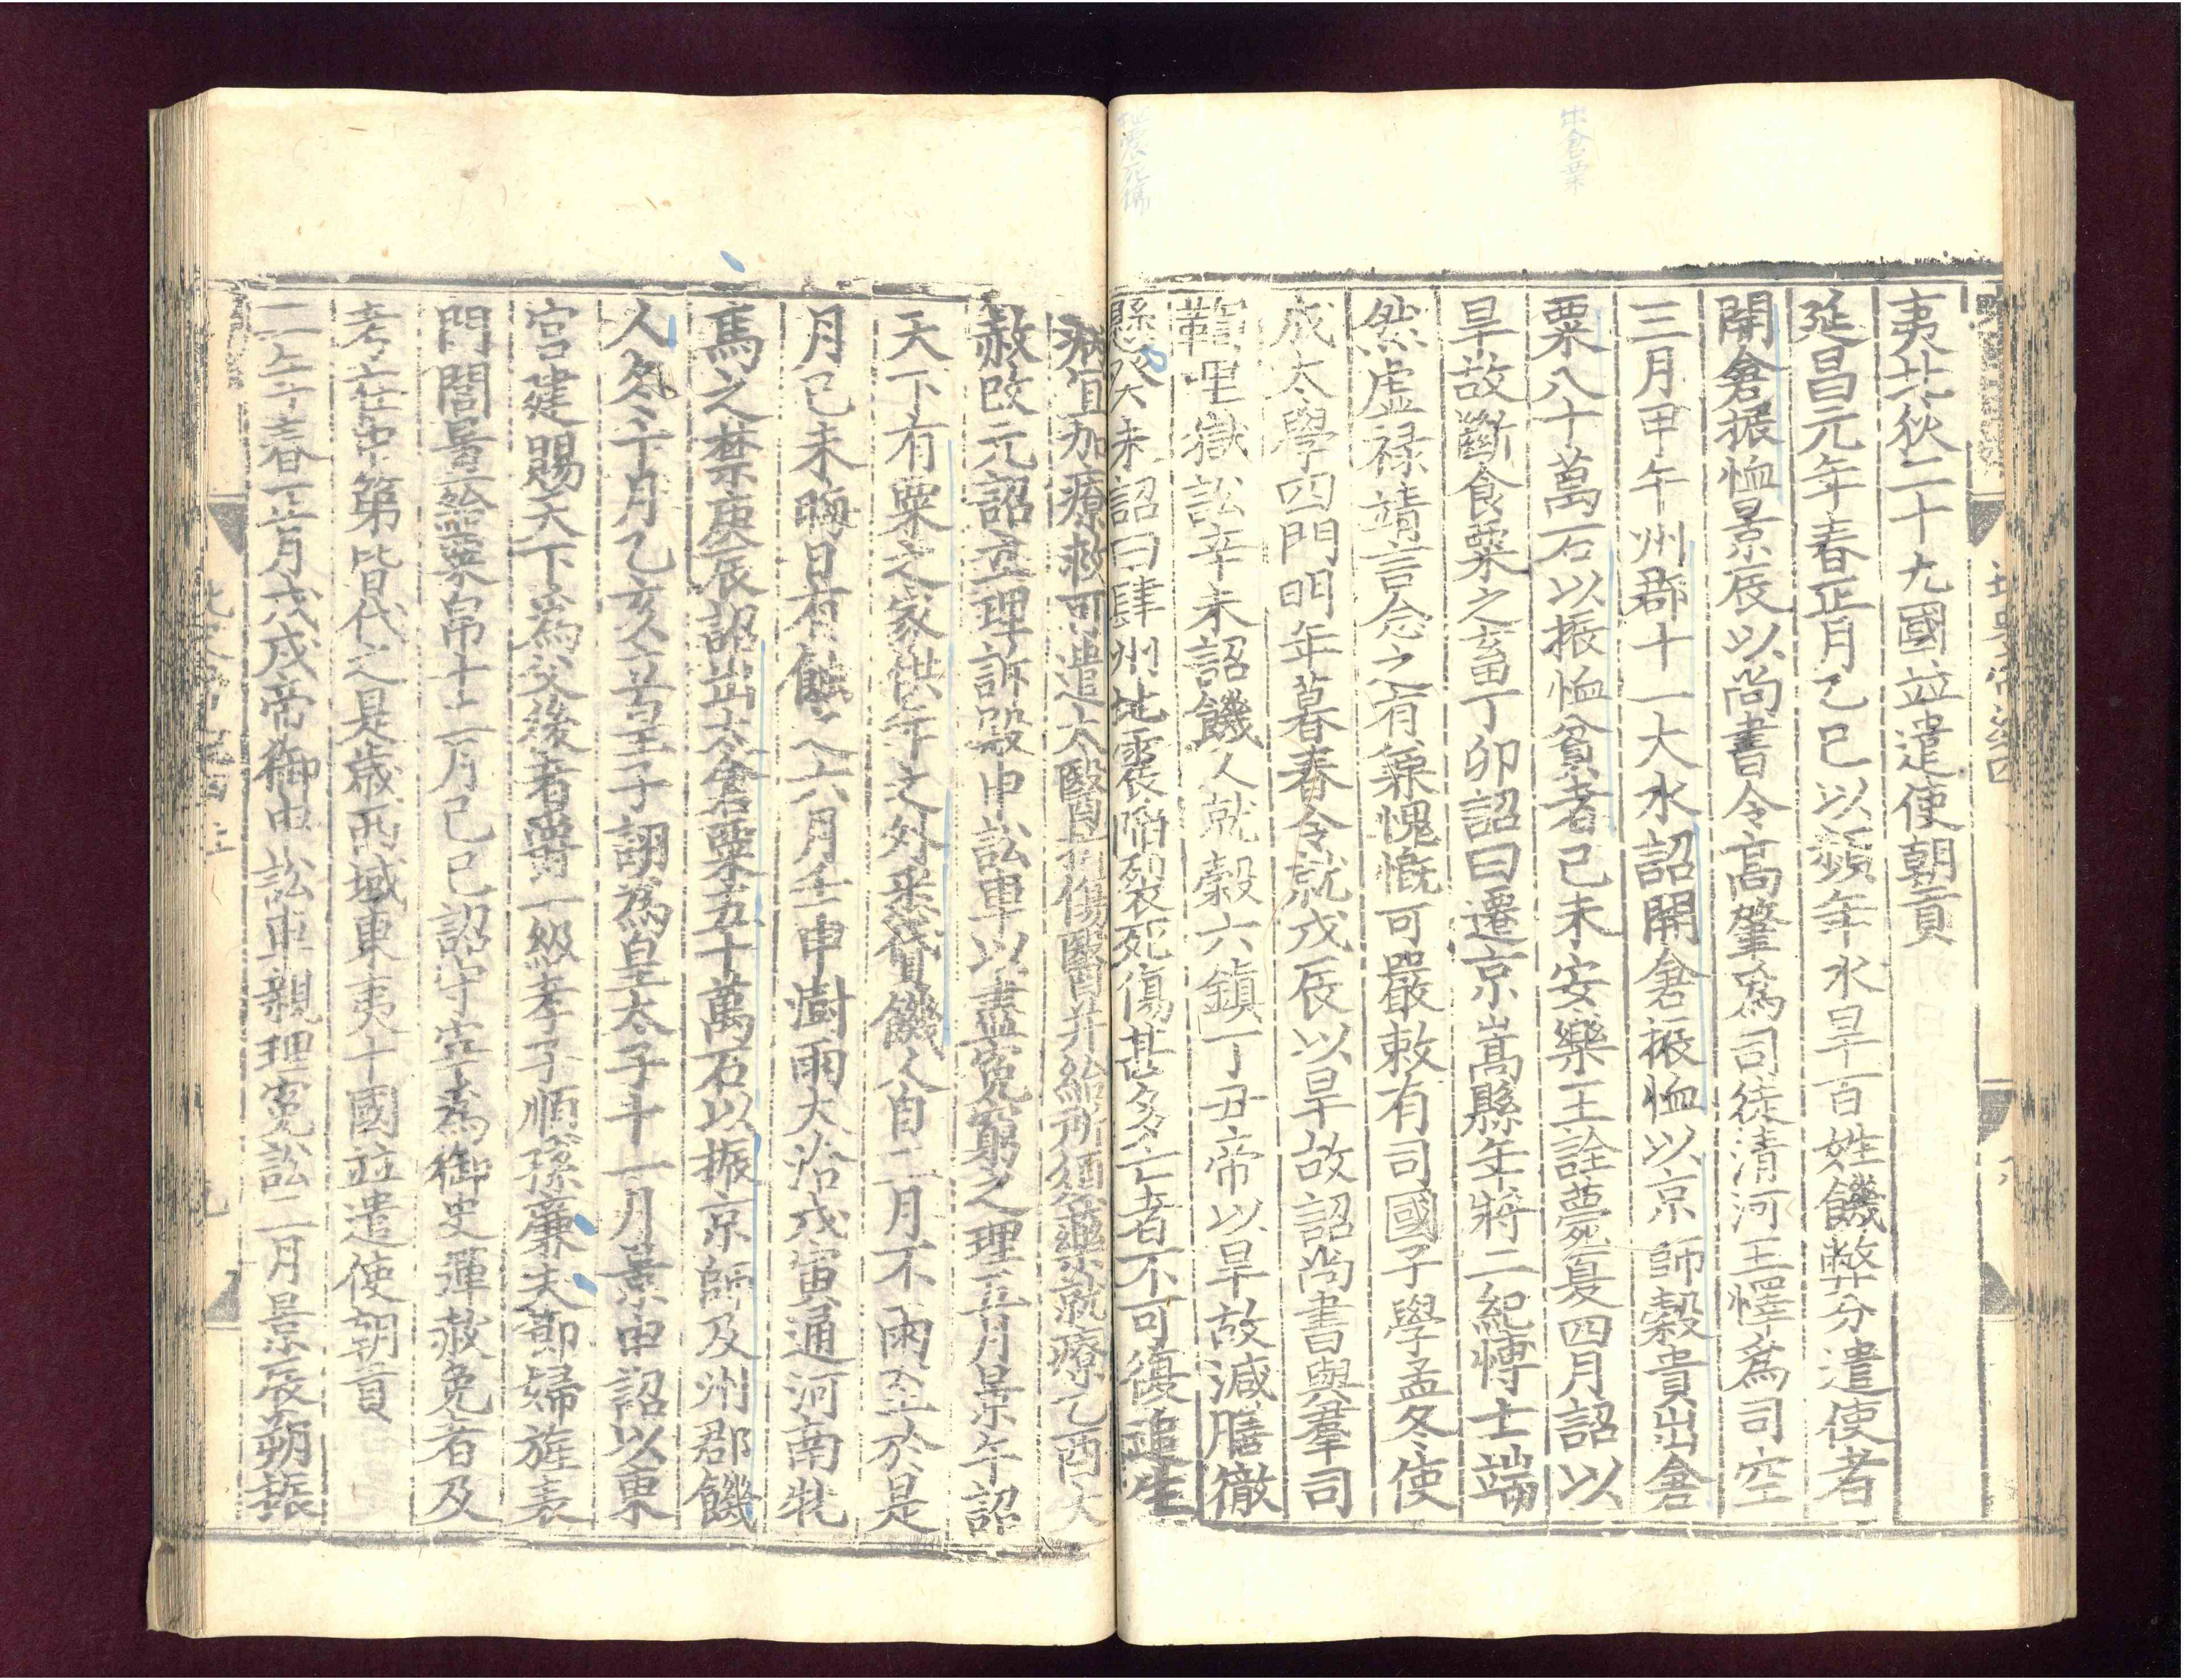 出倉粟
地震死傷
夷北狄二十九國並遣使朝貢
延昌元年春正月乙巳以頻年水旱百姓饑弊分遣使者
開倉振恤景辰以尚書令高肇爲司徒清河王懌爲司空
三月甲午州郡十一大水詔開倉振恤以京師穀貴出倉
粟八十萬石以振恤貧者己未安樂王詮薨夏四月詔以
旱故斷食粟之畜丁卯詔曰遷京嵩縣年將二紀博士端
然虛祿靖言念之有兼愧慨可嚴敕有司國子學孟冬使
成太學四門明年暮春令就戊辰以旱故詔尚書與羣司
鞫理獄訟辛未詔饑人就穀六鎮丁丑帝以旱故減膳徹
懸癸未詔曰肆州地震陷裂死傷甚多亡者不可復追生
病宜加療救可遣太醫折傷醫并給所須藥就療乙酉大
赦改元詔立理訴殿申訟車以盡冤窮之理五月景午詔
天下有粟之家供年之外悉貸饑人自二月不雨至於是
月己未晦日有蝕之六月壬申澍雨大洽戊寅通河南牝
馬之禁庚辰詔出太倉粟五十萬石以振京師及州郡饑
人冬十月乙亥立皇子詡爲皇太子十一月景申詔以東
宮建賜天下爲父後者爵一級孝子順孫廉夫節婦旌表
門閭量給粟帛十二月己巳詔守宰爲御史彈赦免者及
考在中第皆代之是歲西域東夷十國並遣使朝貢
二年春正月戊戌帝御申訟車親理冤訟二月景辰朔振
北史帝紀四
八
九